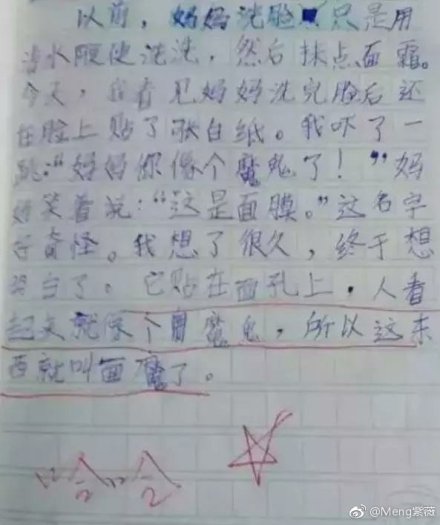 以前，妈妈洗脸只是用
冷水随便洗洗，然后抹点面霜。
今天，我看见妈妈洗完脸后还
在脸上贴了张白纸。我吓了一
跳：“妈妈你像个魔鬼了！”妈
妈笑着说：“这是面膜。”这名字
好奇怪。我想了很久，终于想
明白了。它贴在面孔上，人看
起来就像个魔鬼，所以这东
西就叫面魔了。
@Meng紫薇